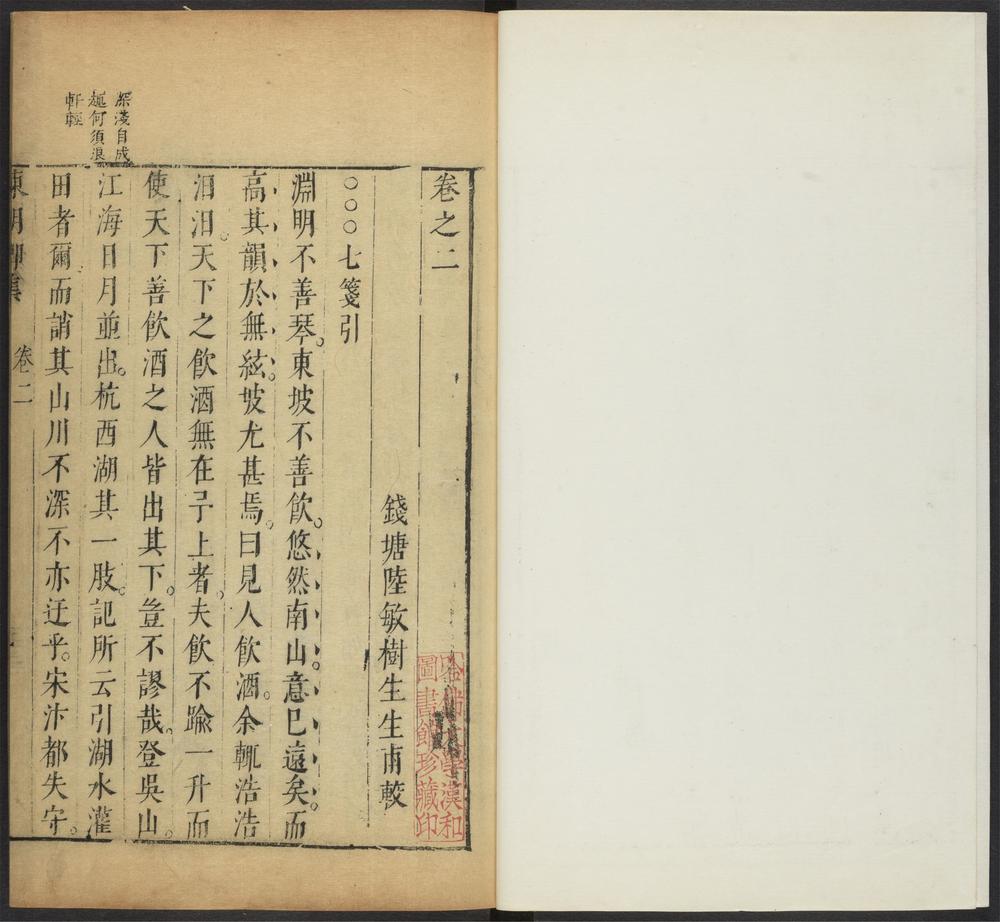 卷之二
錢塘陸敏樹生生甫較
○○○七箋引
淵明不善琴。東坡不善飲。悠然南山。意已遠矣。而
高其韻於無絃。坡尤甚焉。曰見人飲酒。余輒浩浩
汨汨。天下之飲酒無在予上者。夫飲不踰一升而
使天下善飲酒之人皆出其下。豈不謬哉。登吳山。
江海日月並出。杭西湖其一肢。記所云引湖水灌
田者爾而誚其山川不深不亦迂乎。宋汴都失守。
卷二
深淺自成
趣何須浪
軒輊
哈佛大學漢和
圖書館珍藏印